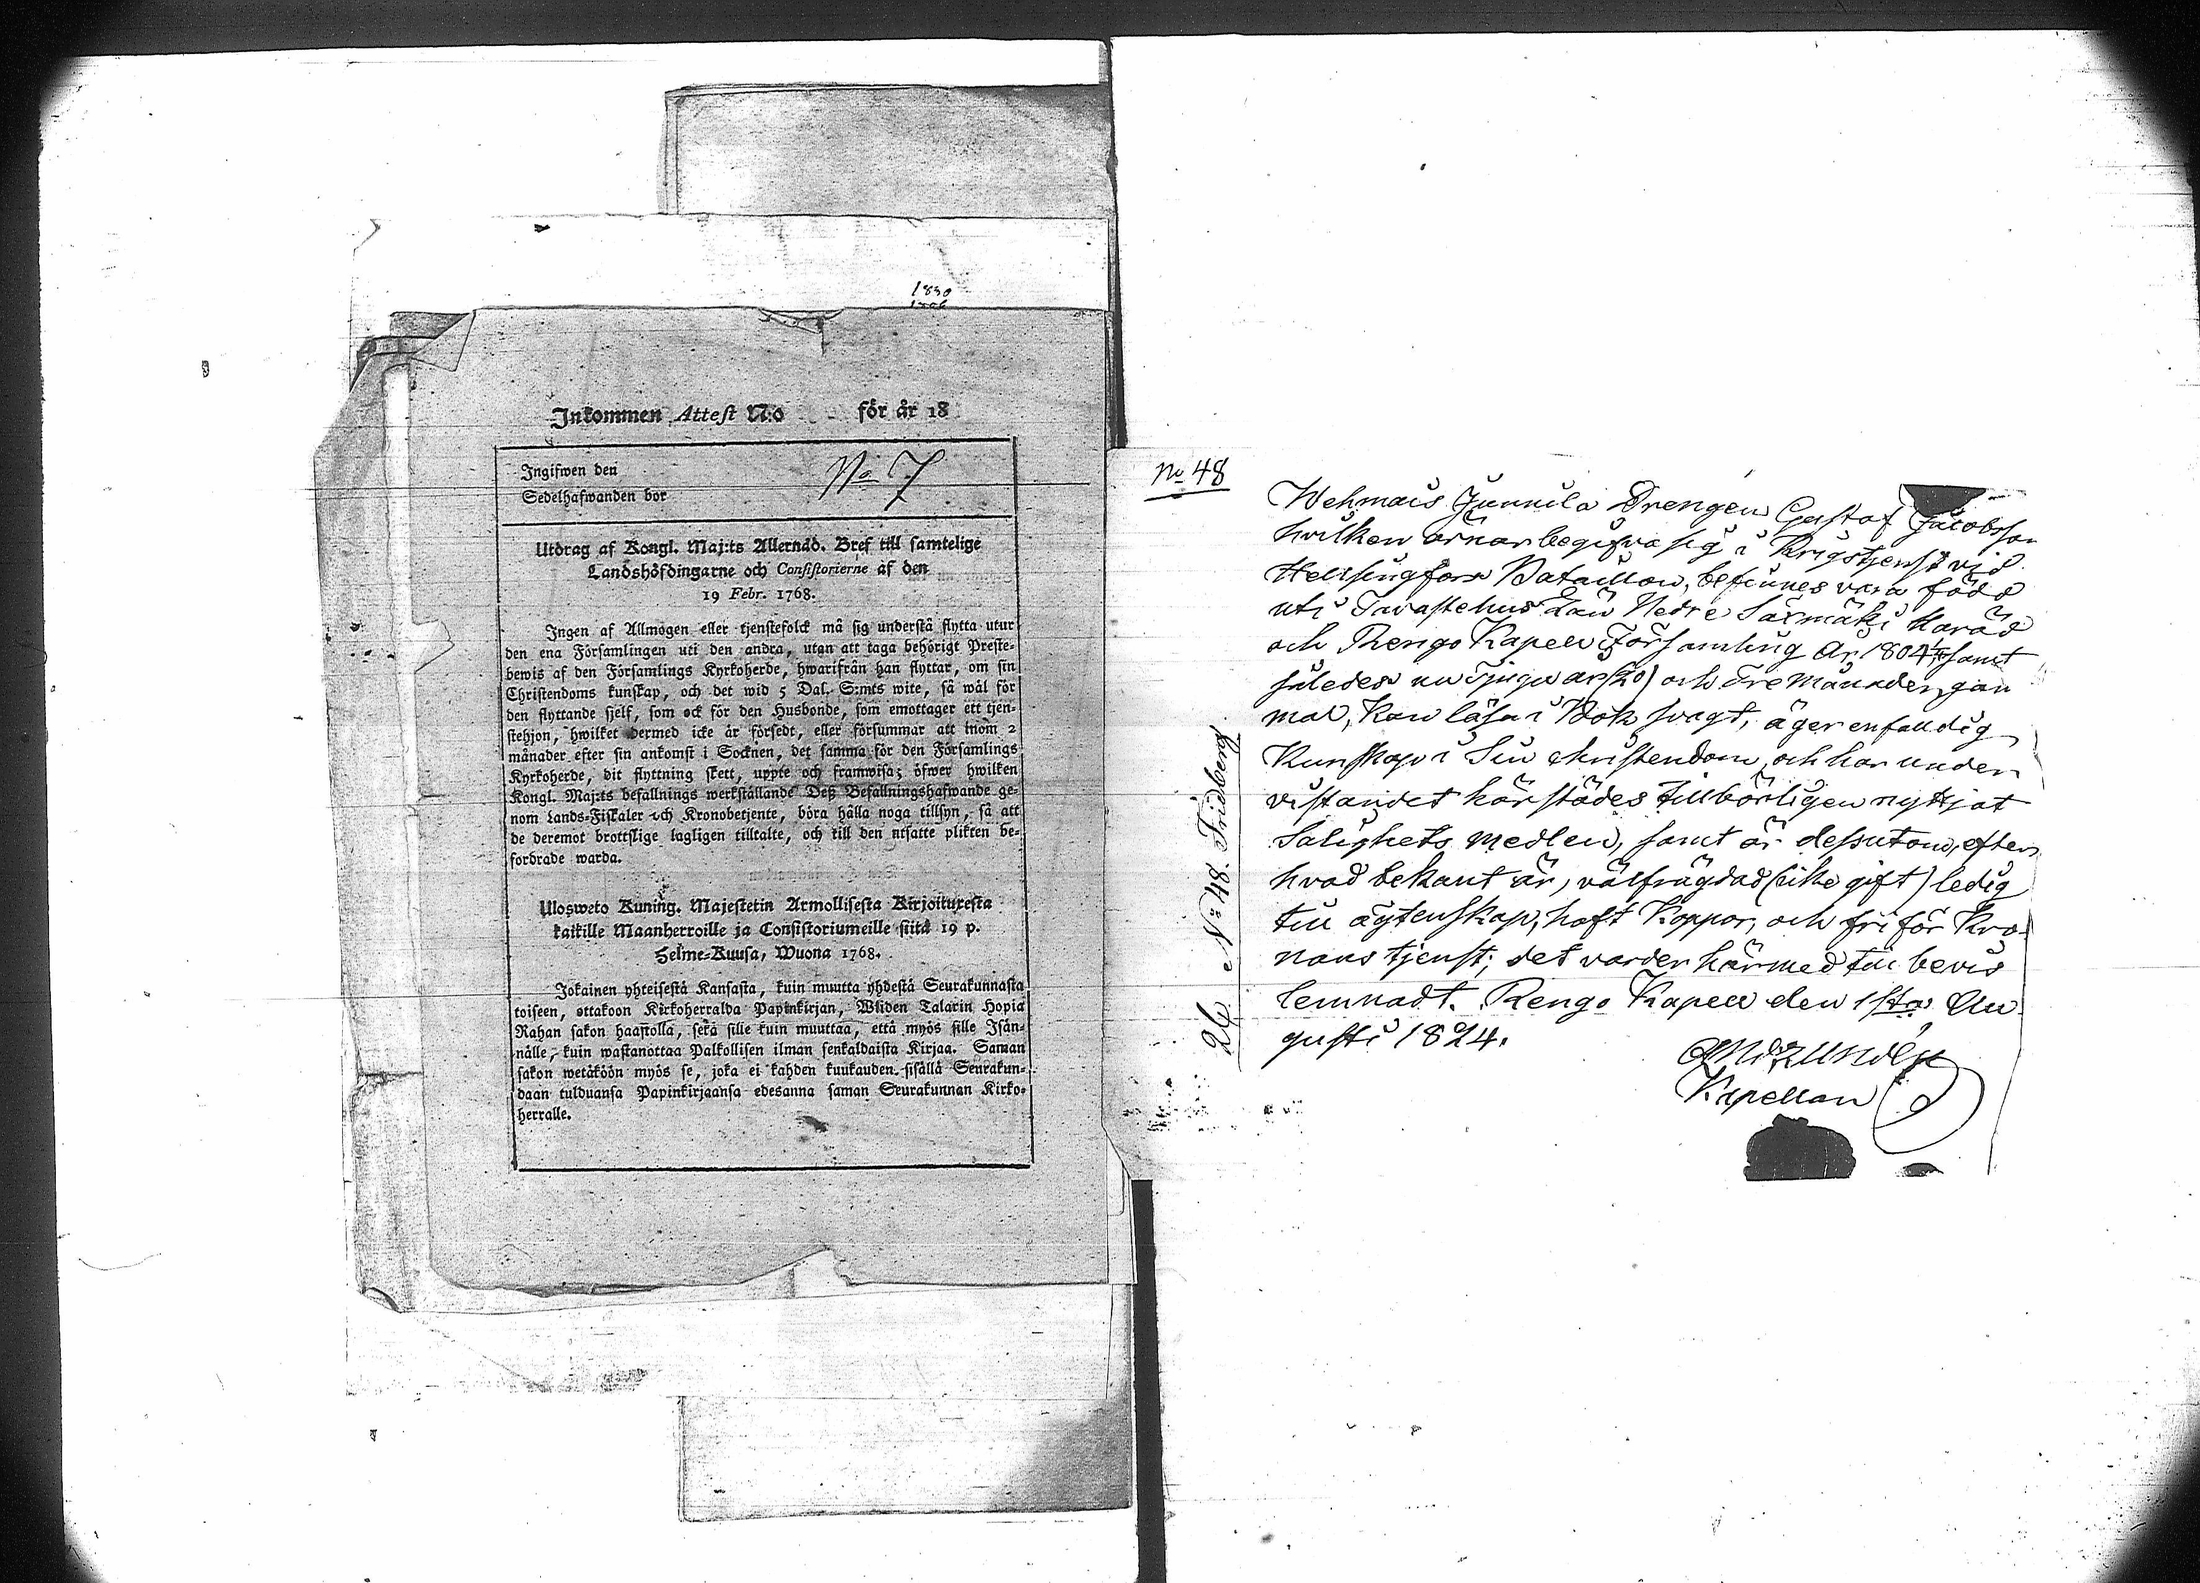 1830
Inkommen Attest N:o för år 18
Ingifwen den
No 7
Sedelhafwanden bor
Utdrag af Kongl. Maj:ts Allernåd. Bref till samtelige
Landshöfdingarne och Consistorierne af den
19 Febr. 1768.
Ingen af Allmogen eller tjenstefolck må sig understå flytta utur
den ena Församlingen uti den andra, utan att taga behörigt Preste-
bewis af den Församlings Kyrkoherde, hwarifrån han flyttar, om sin
Christendoms kunskap, och det wid 5 Dal. S:mts wite, så wäl för
den flyttande sjelf, som ock för den Husbonde, som emottager ett tjen-
stehjon, hwilket dermed icke är försedt, eller försummar att inom 2
månader efter sin ankomst i Socknen, det samma för den Församlings
Kyrkoherde, dit flyttning skett, uppte och framwisa; öfwer hwilken
Kongl. Maj:ts befallnings werkställande Deß Befallningshafwande ge-
nom Lands-Fiskaler och Kronobetjente, böra hålla noga tillsyn, så att
de deremot brottslige lagligen tilltalte, och till den utsatte plikten be-
fordrade warda.
Ulosweto Kuning. Majestetin Armollisesta Kirjoituxesta
kaikille Maanherroille ja Consistoriumeille siitä 19 p.
Helme-Kuusa, Wuona 1768.
Jokainen yhteisestä Kansasta, kuin muutta yhdestä Seurakunnasta
toiseen, ottakoon Kirkoherralda Papinkirjan, Wiiden Talarin Hopia
Rahan sakon haastolla, sekä sille kuin muuttaa, että myös sille Isän-
nälle, kuin wastanottaa Palkollisen ilman senkaldaista Kirjaa. Saman
sakon wetäköön myös se, joka ei kahden kuukauden sisällä Seurakun-
daan tulduansa Papinkirjaansa edesanna saman Seurakunnan Kirko-
herralle.
No 48
Wehmais Junnila Drengen Gustaf Jacobsson
hvilken ärnar begifva sig i Krigstjenst vid
Helsingfors Bataillon, befinnes vara född
uti Tavastehus Län Nedre Säxmäki Härad
och Rengo Kapell Församling År 1804 samt
således nu Tjugu år (20) och Tre Månader gam
mal, kan läsa i Bok svagt, äger enfalldig
Kunskap i Sin Christendom, och har under
vistandet härstädes tillbörligen nyttjat
Salighets medlen, samt är dessutom, efter
hvad bekant är, välfrägdad (icke gift) ledig
till ägtenskap, haft Koppor, och fri för Kro-
nans tjenst; det varder härmed till bevis
lemnadt. Rengo Kapell den 1sta Au
gusti 1824.
Kapellan
26 No 48. Fridberg